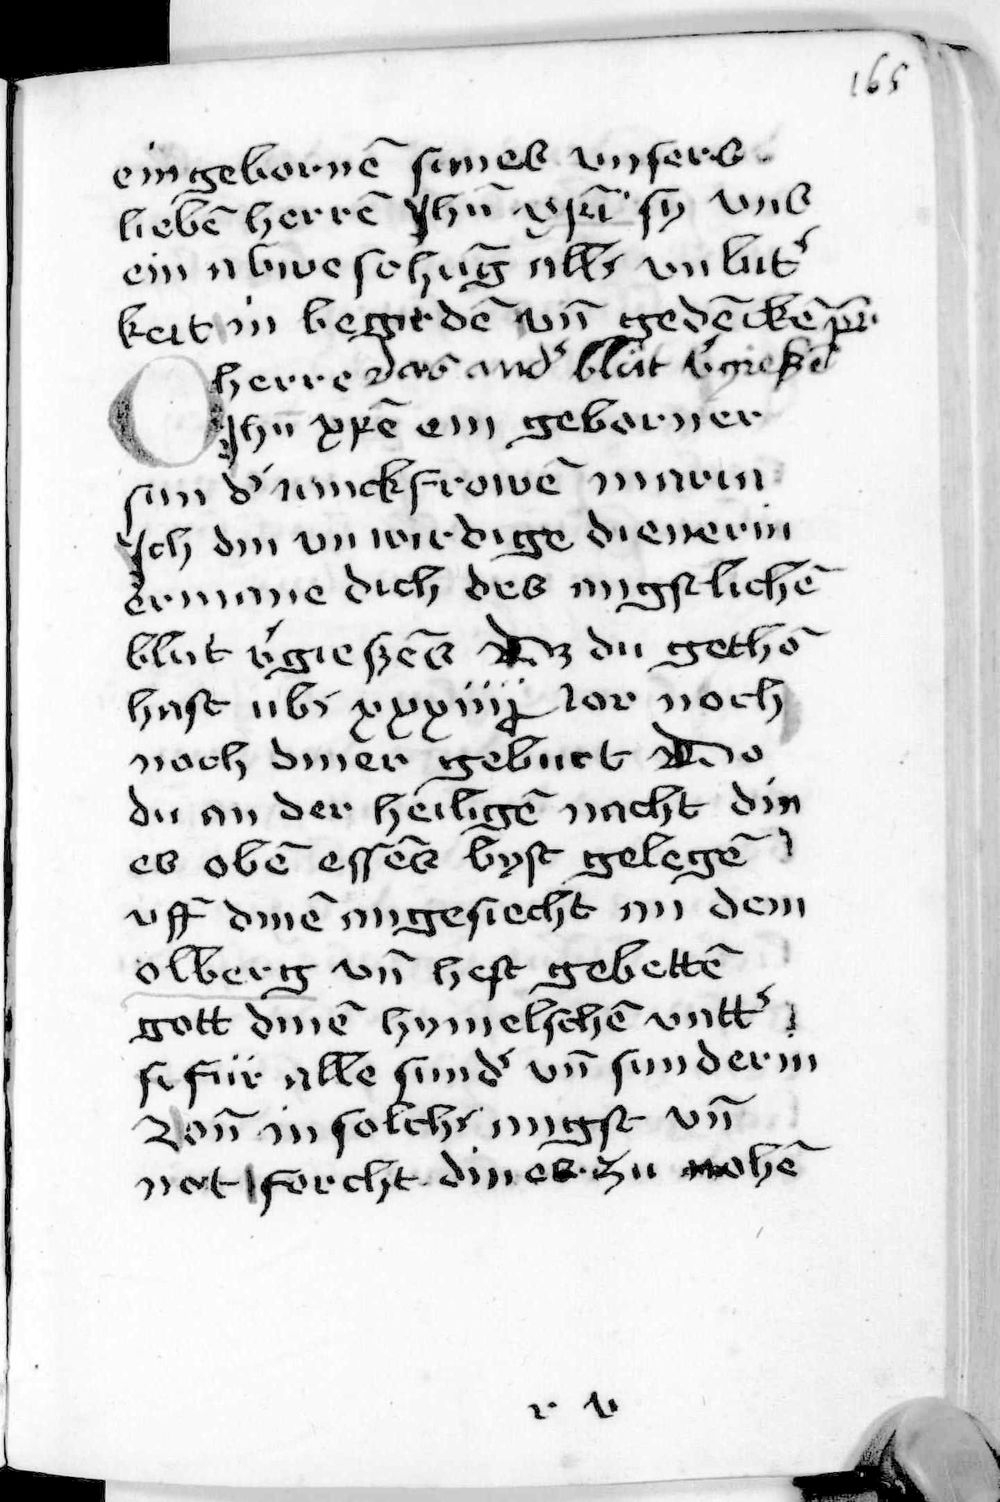 165
eingebornē sunes vnsers
liebē herrē Jhū xpī sy vns
ein abweschūg all' vnlut'
keit in begirdē vn̄ gedēckē pr̄
O herre das and' blůt v'gießē
Jhū xpē ein geborner
sun d' iunckfrowē maria
Jch din vnwirdige dienerin
ermane dich des angstlichē
blůt v'gießēs Dz du gethō
hast ub' xxxiiij Jor noch
noch diner geburt Do
du an der heiligē nacht din
es obē essēs byst gelegē
vff dinē angesiecht an dem
olberg vn̄ hest gebettē
gott dinē hymelschē vatt'
fi für alle sund' vn̄ sunderin
Von in solch' angst vn̄
not forcht dines zu nohē
r v